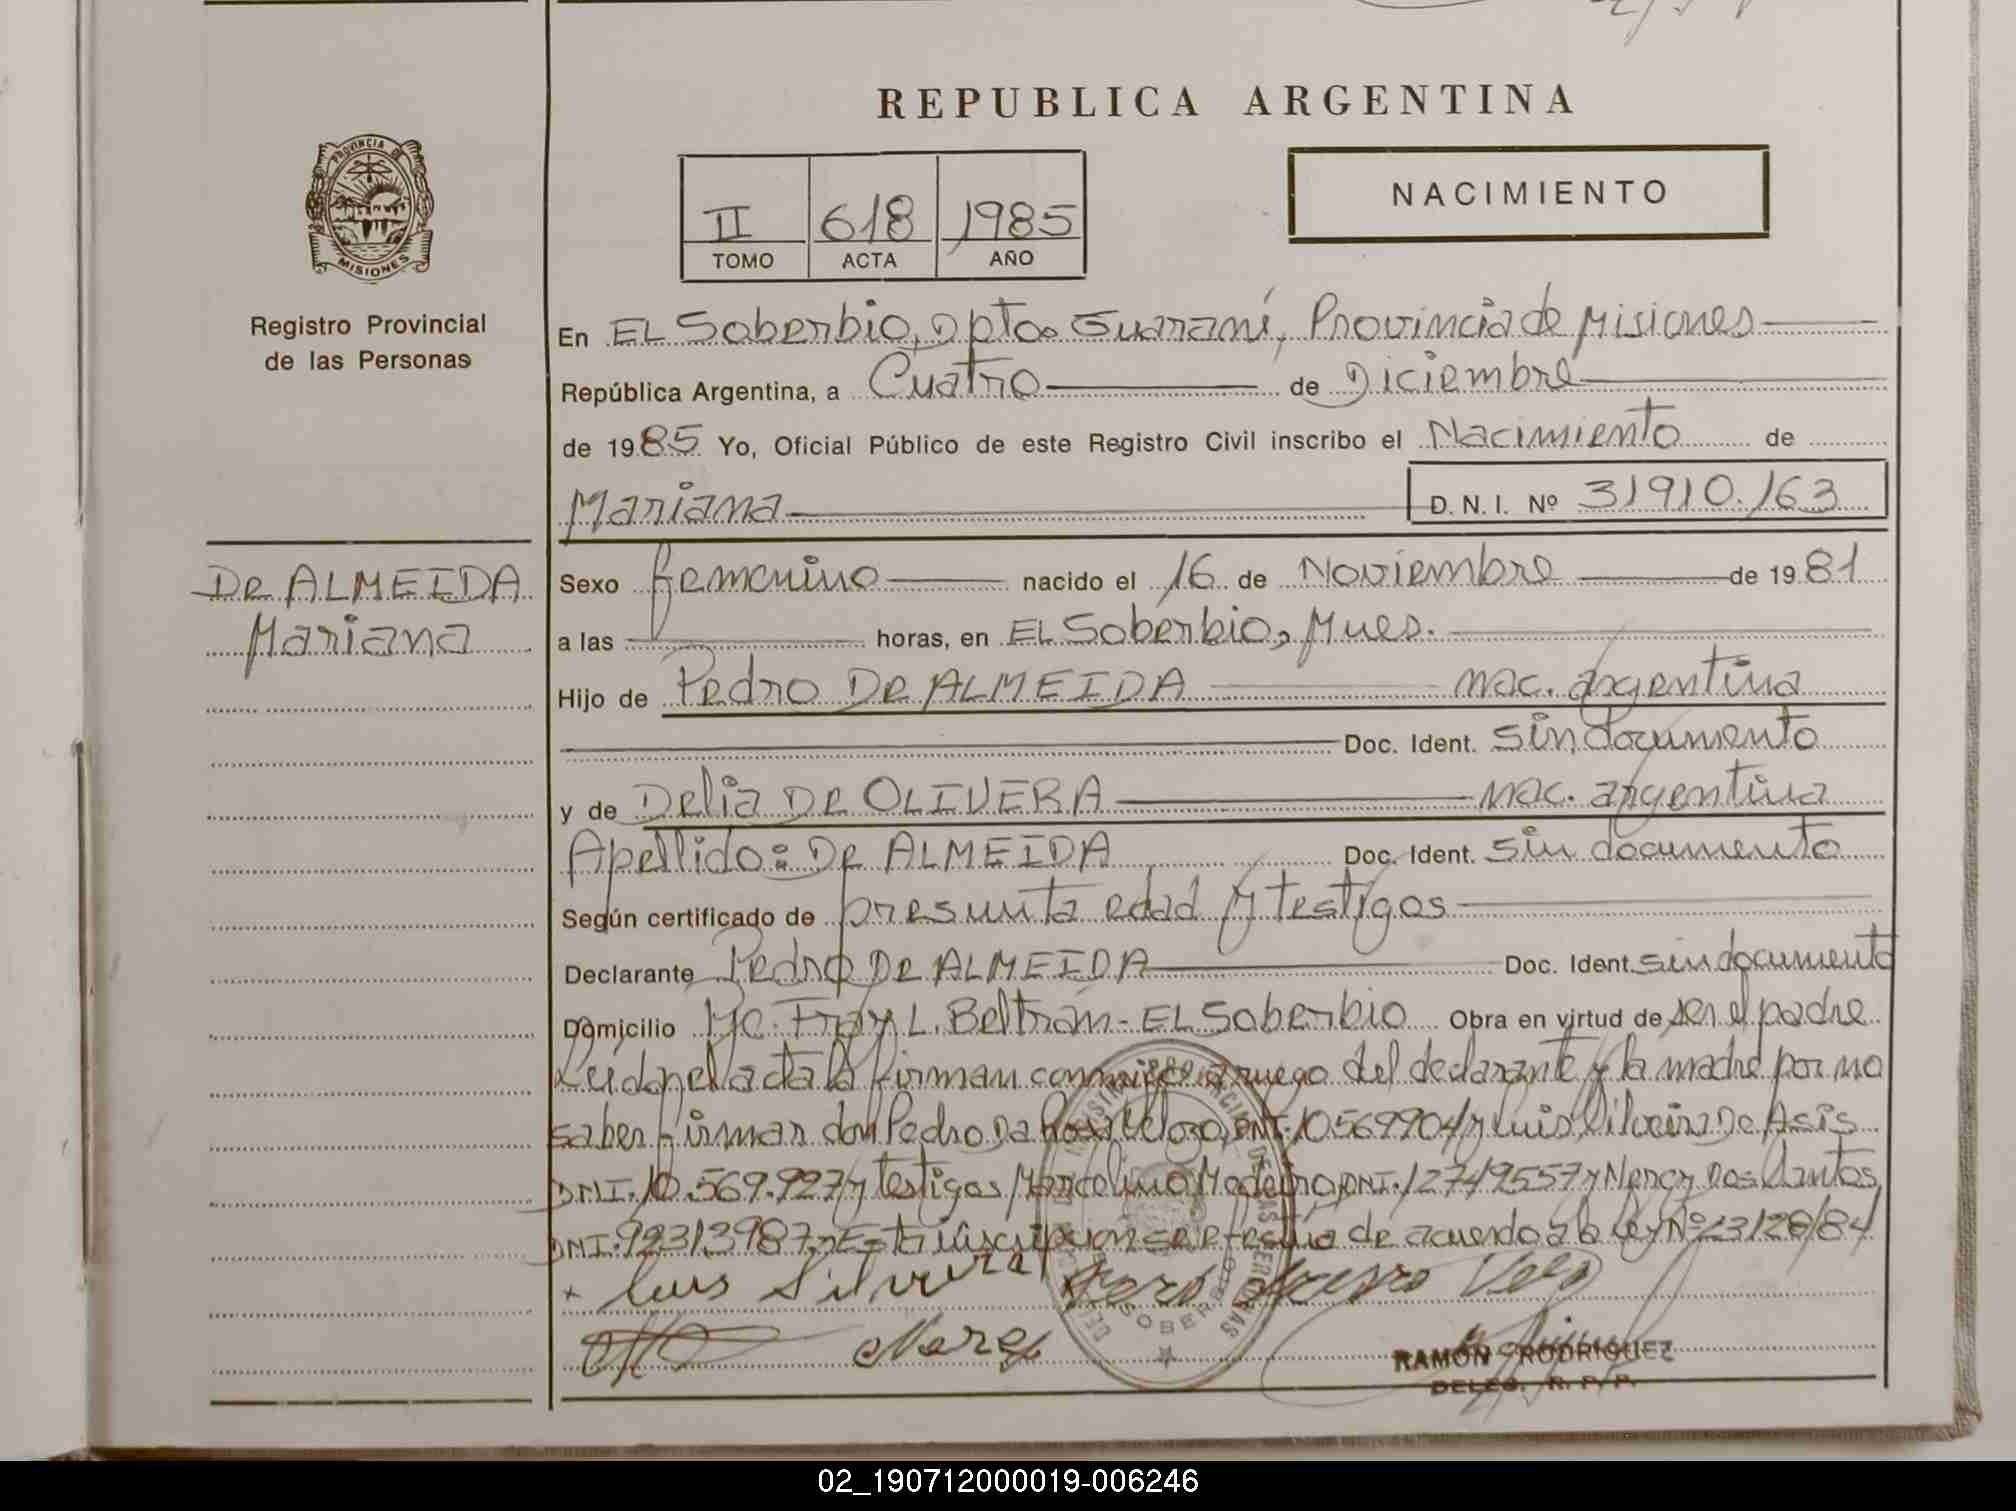 REPUBLICA ARGENTINA
PROVINCIA DE
MISIONES
Registro Provincial
de las Personas
II 618 1985
TOMO ACTA AÑO
NACIMIENTO
En EL Soberbio, Dpto. Guaraní, Provincia de Misiones
República Argentina, a Cuatro de Diciembre
de 1985 Yo, Oficial Público de este Registro Civil inscribo el Nacimiento de
Mariana D. N. I. Nº 31910.163
De ALMEIDA
Mariana
Sexo femenino nacido el 16 de Noviembre de 1981
a las horas, en EL Soberbio, Mnes.
Hijo de Pedro De ALMEIDA nac. argentina
Doc. Ident. sin documento
y de Delia De OLIVERA nac. argentina
Apellido: De ALMEIDA Doc. Ident. sin documento
Según certificado de presunta edad y testigos
Declarante Pedro De ALMEIDA Doc. Ident. sin documento
Domicilio Mc. Fray L. Beltrán - EL Soberbio Obra en virtud de ser el padre
Leída el acta la firman conmigo a ruego del declarante y la madre por no
saber firmar don Pedro Da Rosa Velozo, DNI. 10569904 y Luis Silveira De Asis
DNI. 10.569.927 y testigos Marcelino Medeiro, DNI. 12749557 y Nercy Dos Santos
DNI. 92313987. Esta inscripción se efectúa de acuerdo a la Ley Nº 23128/84
x Luis Silveira
Nercy
RAMON RODRIGUEZ
DELEG. R. P. P.
SOBERBIO
02_190712000019-006246